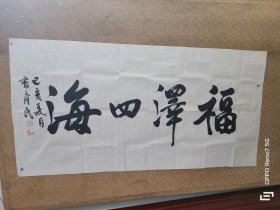 福澤四海
己亥夏月
OPPO Reno7 5G